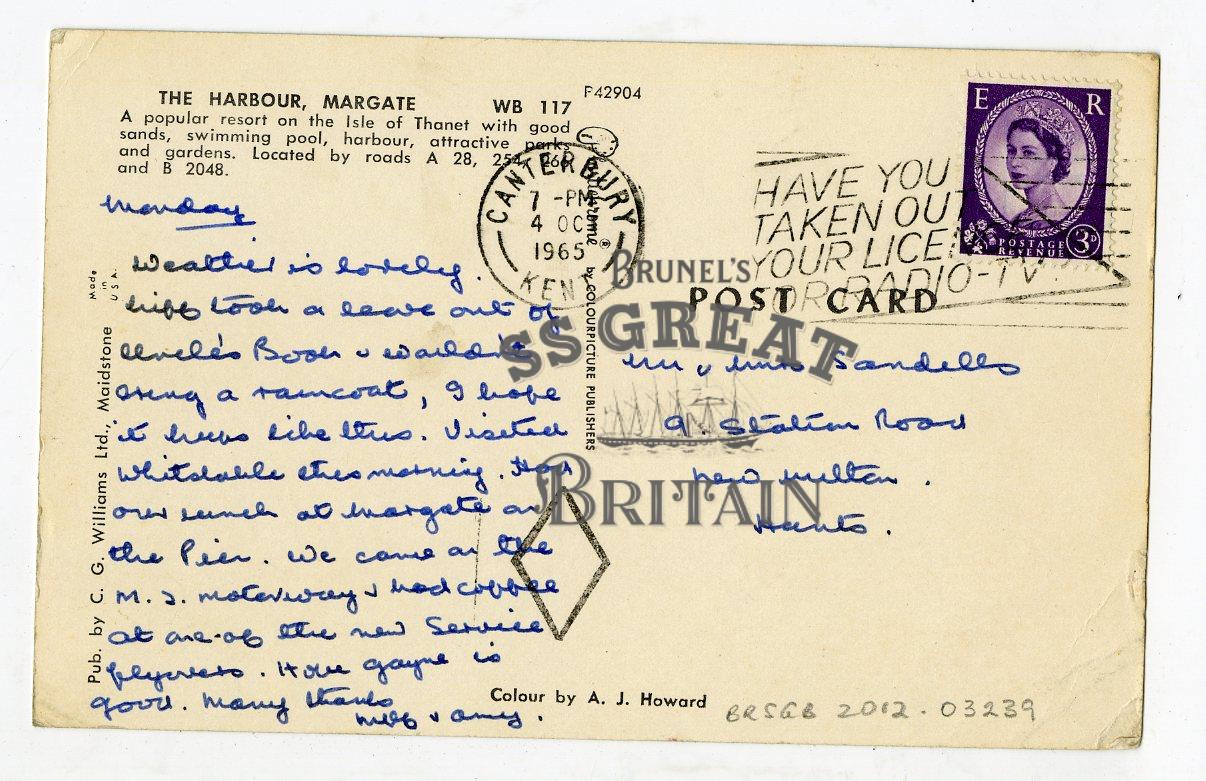 THE HARBOUR, MARGATE WB 117
P42904
A popular resort on the Isle of Thanet with good
sands, swimming pool, harbour, attractive parks
and gardens. Located by roads A 28, 254, 266
and B 2048.
CANTERBURY
7 -PM
4 OC
1965
KENT
HAVE YOU
TAKEN OUT
YOUR LICEN
FOR RADIO-TV
E R
POSTAGE
REVENUE
3D
POST CARD
Monday
Weather is lovely.
took a leave out of
Uncle's Book & wouldn't
bring a raincoat, I hope
it keeps like this. Visited
Whitstable this morning. Had
our lunch at Margate on
the Pier. We came on the
M. 2. motorway & had coffee
at one of the new Service
flyovers. Hope Gayne is
good. Many thanks
& Amy.
Mr & Mrs Sandells
9. Station Road
New Milton.
Hants.
Made in U.S.A.
Pub. by C. G. Williams Ltd., Maidstone
by COLOURPICTURE PUBLISHERS
Colour by A. J. Howard
BRSGB 2012.03239
BRUNEL'S
SS GREAT
BRITAIN